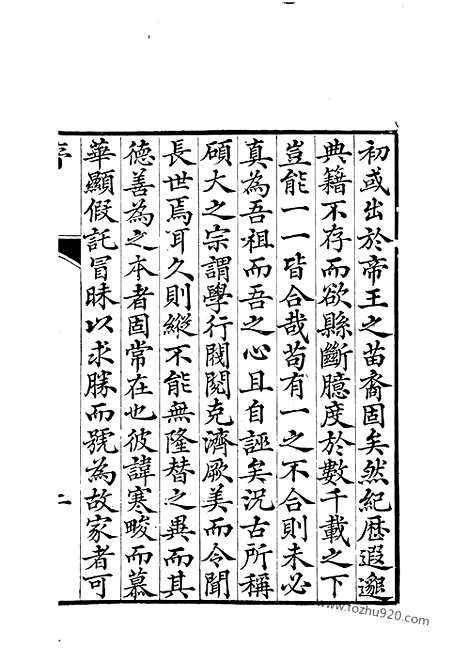 初或出於帝王之苗裔固矣然紀歷遐邈
典籍不存而欲縣斷臆度於數千載之下
豈能一一皆合哉苟有一之不合則未必
真為吾祖而吾之心且自誣矣況古所稱
碩大之宗謂學行閥閱克濟厥美而令聞
長世焉耳久則縱不能無隆替之異而其
德善為之本者固常在也彼諱寒畯而慕
華顯假託冒昧以求勝而號為故家者可
序
二
www.fozhu920.com